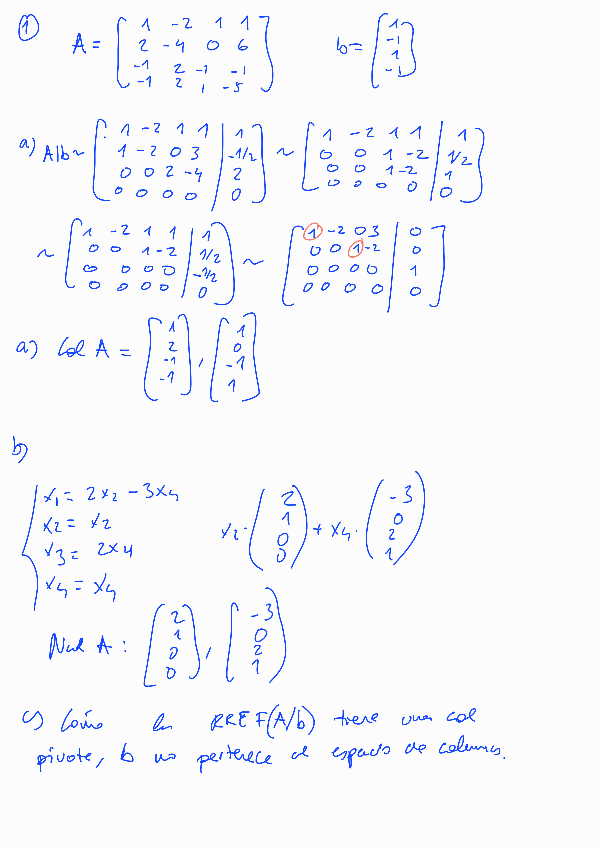 ① A = [ 1 -2 1 1 ; 2 -4 0 6 ; -1 2 -1 -1 ; -1 2 1 -5 ] b = [ 1 ; -1 ; 1 ; -1 ]
a) A|b ~ [ 1 -2 1 1 | 1 ; 1 -2 0 3 | -1/2 ; 0 0 2 -4 | 2 ; 0 0 0 0 | 0 ] ~ [ 1 -2 1 1 | 1 ; 0 0 1 -2 | 1/2 ; 0 0 1 -2 | 1 ; 0 0 0 0 | 0 ]
~ [ 1 -2 1 1 | 1 ; 0 0 1 -2 | 1/2 ; 0 0 0 0 | -1/2 ; 0 0 0 0 | 0 ] ~ [ 1 -2 0 3 | 0 ; 0 0 1 -2 | 0 ; 0 0 0 0 | 1 ; 0 0 0 0 | 0 ]
a) Col A = [ 1 ; 2 ; -1 ; -1 ] , [ 1 ; 0 ; -1 ; 1 ]
b)
x1 = 2x2 - 3x4
x2 = x2
x3 = 2x4
x4 = x4
x2 · ( 2 ; 1 ; 0 ; 0 ) + x4 · ( -3 ; 0 ; 2 ; 1 )
Nul A : [ 2 ; 1 ; 0 ; 0 ] , [ -3 ; 0 ; 2 ; 1 ]
c) Como la RREF(A/b) tiene una col
pivote, b no pertenece al espacio de columnas.